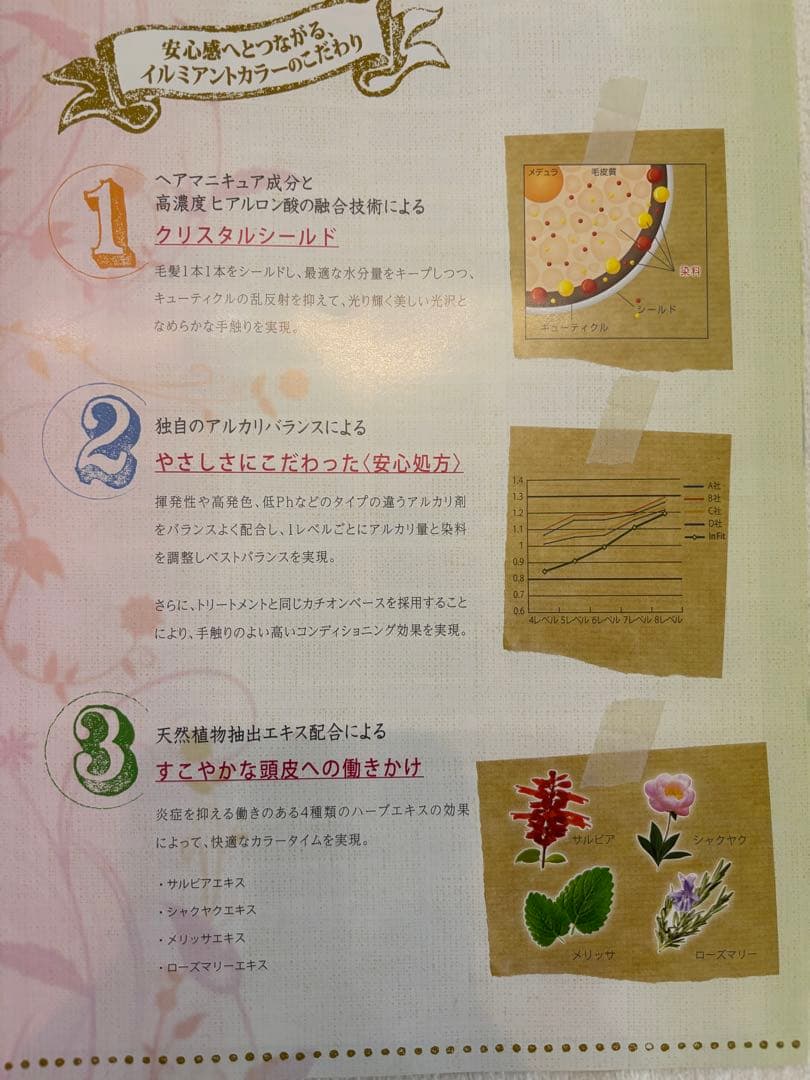 安心感へとつながる、
イルミアントカラーのこだわり
1
ヘアマニキュア成分と
高濃度ヒアルロン酸の融合技術による
クリスタルシールド
毛髪1本1本をシールドし、最適な水分量をキープしつつ、
キューティクルの乱反射を抑えて、光り輝く美しい光沢と
なめらかな手触りを実現。
メデュラ 毛皮質
染料
シールド
キューティクル
2
独自のアルカリバランスによる
やさしさにこだわった〈安心処方〉
揮発性や高発色、低Phなどのタイプの違うアルカリ剤
をバランスよく配合し、1レベルごとにアルカリ量と染料
を調整しベストバランスを実現。
さらに、トリートメントと同じカチオンベースを採用すること
により、手触りのよい高いコンディショニング効果を実現。
1.4
1.3
1.2
1.1
1
0.9
0.8
0.7
0.6
4レベル 5レベル 6レベル 7レベル 8レベル
A社
B社
C社
D社
InFit
3
天然植物抽出エキス配合による
すこやかな頭皮への働きかけ
炎症を抑える働きのある4種類のハーブエキスの効果
によって、快適なカラータイムを実現。
・サルビアエキス
・シャクヤクエキス
・メリッサエキス
・ローズマリーエキス
サルビア シャクヤク
メリッサ ローズマリー